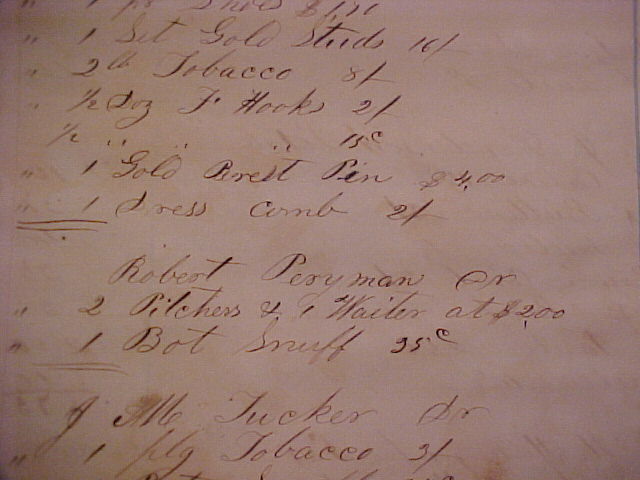 " 1 pr Shoes
" 1 Set Gold Studs 16/
" 2 lb Tobacco 8/
" 1/2 Doz F Hooks 2/
1/2 " " " 15c
" 1 Gold Brest Pin $4,00
" 1 Dress comb 2/
Robert Peryman Dr
" 2 Pitchers & 1 Waiter at $2,00
" 1 Bot Snuff 25c
J Tucker Dr
" 1 plg Tobacco 3/